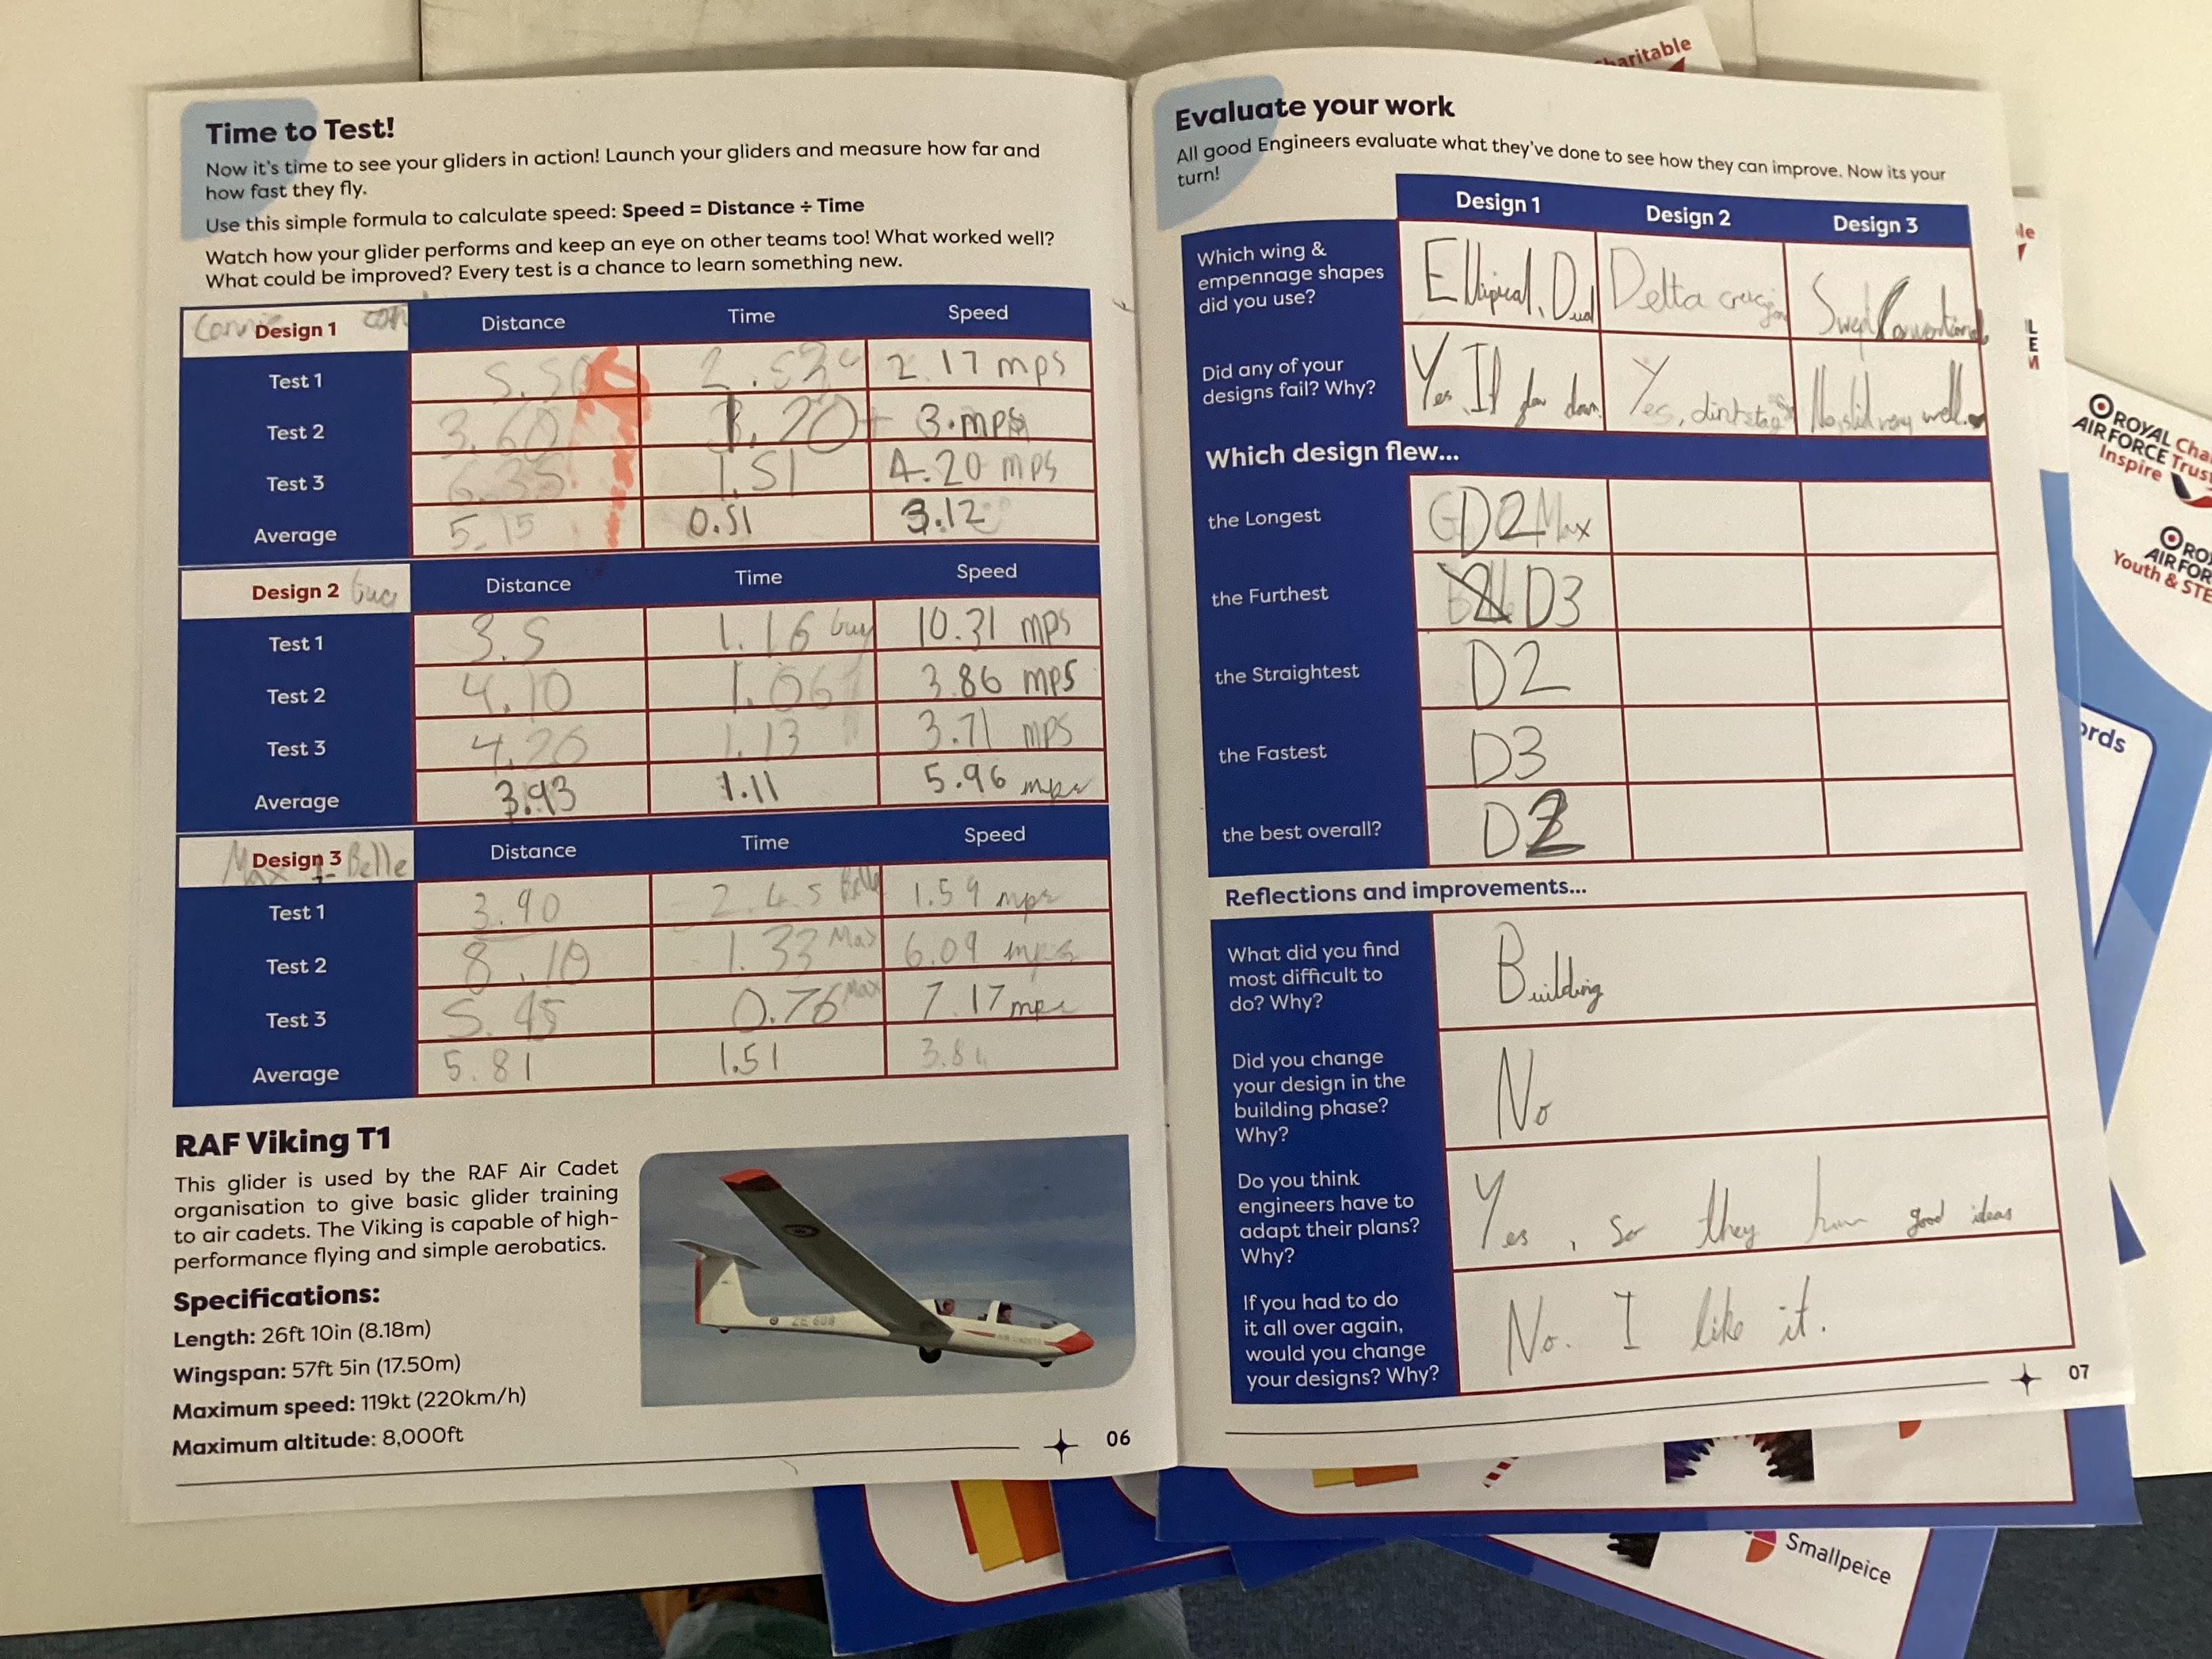 Time to Test!
Now it's time to see your gliders in action! Launch your gliders and measure how far and
how fast they fly.
Use this simple formula to calculate speed: Speed = Distance ÷ Time
Watch how your glider performs and keep an eye on other teams too! What worked well?
What could be improved? Every test is a chance to learn something new.
Design 1 Distance Time Speed
Test 1 2.17 mps
Test 2 3.60 3.mps
Test 3 6.35 1.51 4.20 mps
Average 5.15 0.51 3.12
Design 2 Distance Time Speed
Test 1 3.5 1.16 10.31 mps
Test 2 4.10 1.06 3.86 mps
Test 3 4.20 1.13 3.71 mps
Average 3.93 1.11 5.96 mps
Max Design 3 Belle Distance Time Speed
Test 1 3.90 2.45 Belle 1.59 mps
Test 2 8.10 1.33 Max 6.09 mps
Test 3 5.45 0.76 Max 7.17 mps
Average 5.81 1.51
RAF Viking T1
This glider is used by the RAF Air Cadet
organisation to give basic glider training
to air cadets. The Viking is capable of high-
performance flying and simple aerobatics.
Specifications:
Length: 26ft 10in (8.18m)
Wingspan: 57ft 5in (17.50m)
Maximum speed: 119kt (220km/h)
Maximum altitude: 8,000ft
06
Evaluate your work
All good Engineers evaluate what they've done to see how they can improve. Now its your
turn!
Design 1 Design 2 Design 3
Which wing &
empennage shapes
did you use?
Elliptical, Dual
Delta
Swept Conventional
Did any of your
designs fail? Why?
Yes It down
Yes,
No, slid very well.
Which design flew...
the Longest D2 Max
the Furthest D3
the Straightest D2
the Fastest D3
the best overall? D2
Reflections and improvements...
What did you find
most difficult to
do? Why?
Building
Did you change
your design in the
building phase?
Why?
No
Do you think
engineers have to
adapt their plans?
Why?
Yes, so they have good ideas
If you had to do
it all over again,
would you change
your designs? Why?
No. I like it.
07
Charitable
ROYAL
AIR FORCE
Inspire
Youth & STE
ords
Smallpeice